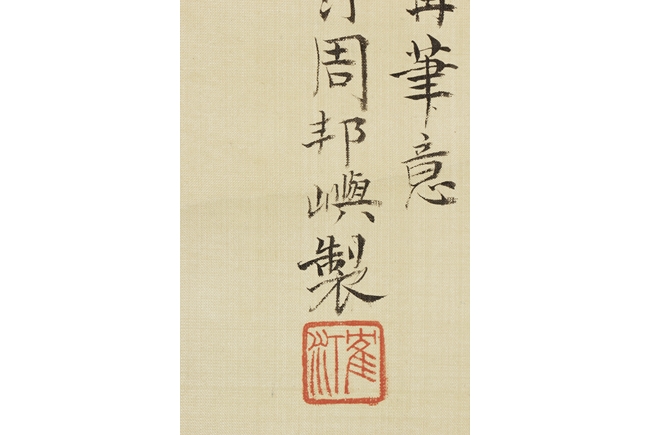 筆意
周邦嶼製